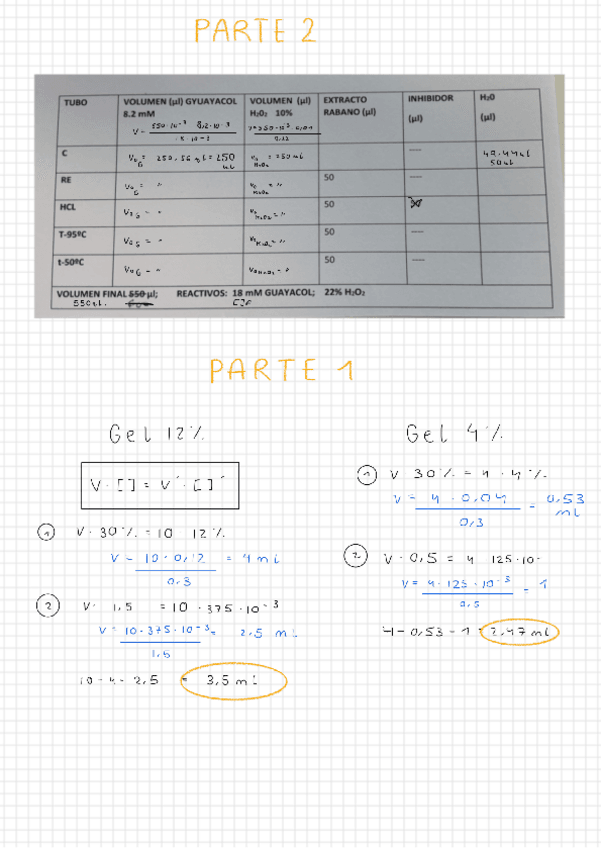 PARTE 2
TUBO
VOLUMEN (µl) GYUAYACOL 8.2 mM
VOLUMEN (µl) H₂O₂ 10%
EXTRACTO RABANO (µl)
INHIBIDOR (µl)
H₂0 (µl)
C
250,56 µl = 250 µl
= 250 µl
----
49,44 µl
50 µl
RE
50
----
HCL
50
T-95ºC
50
----
t-50ºC
50
----
VOLUMEN FINAL 550 µl; REACTIVOS: 18 mM GUAYACOL; 22% H₂O₂
550 µl.
PARTE 1
Gel 12%
V · [] = V´ · []´
1 V · 30% = 10 12%
V = 10 · 0,12 / 0,3 = 4 ml
2 V · 1,5 = 10 · 375 · 10⁻³
V = 10 · 375 · 10⁻³ / 1,5 = 2,5 ml
10 - 4 - 2,5 = 3,5 ml
Gel 4%
1 V 30% = 4 · 4%
V = 4 · 0,04 / 0,3 = 0,53 ml
2 V · 0,5 = 4 125 · 10⁻
V = 4 · 125 · 10⁻³ / 0,5 = 1
4 - 0,53 - 1 = 2,47 ml